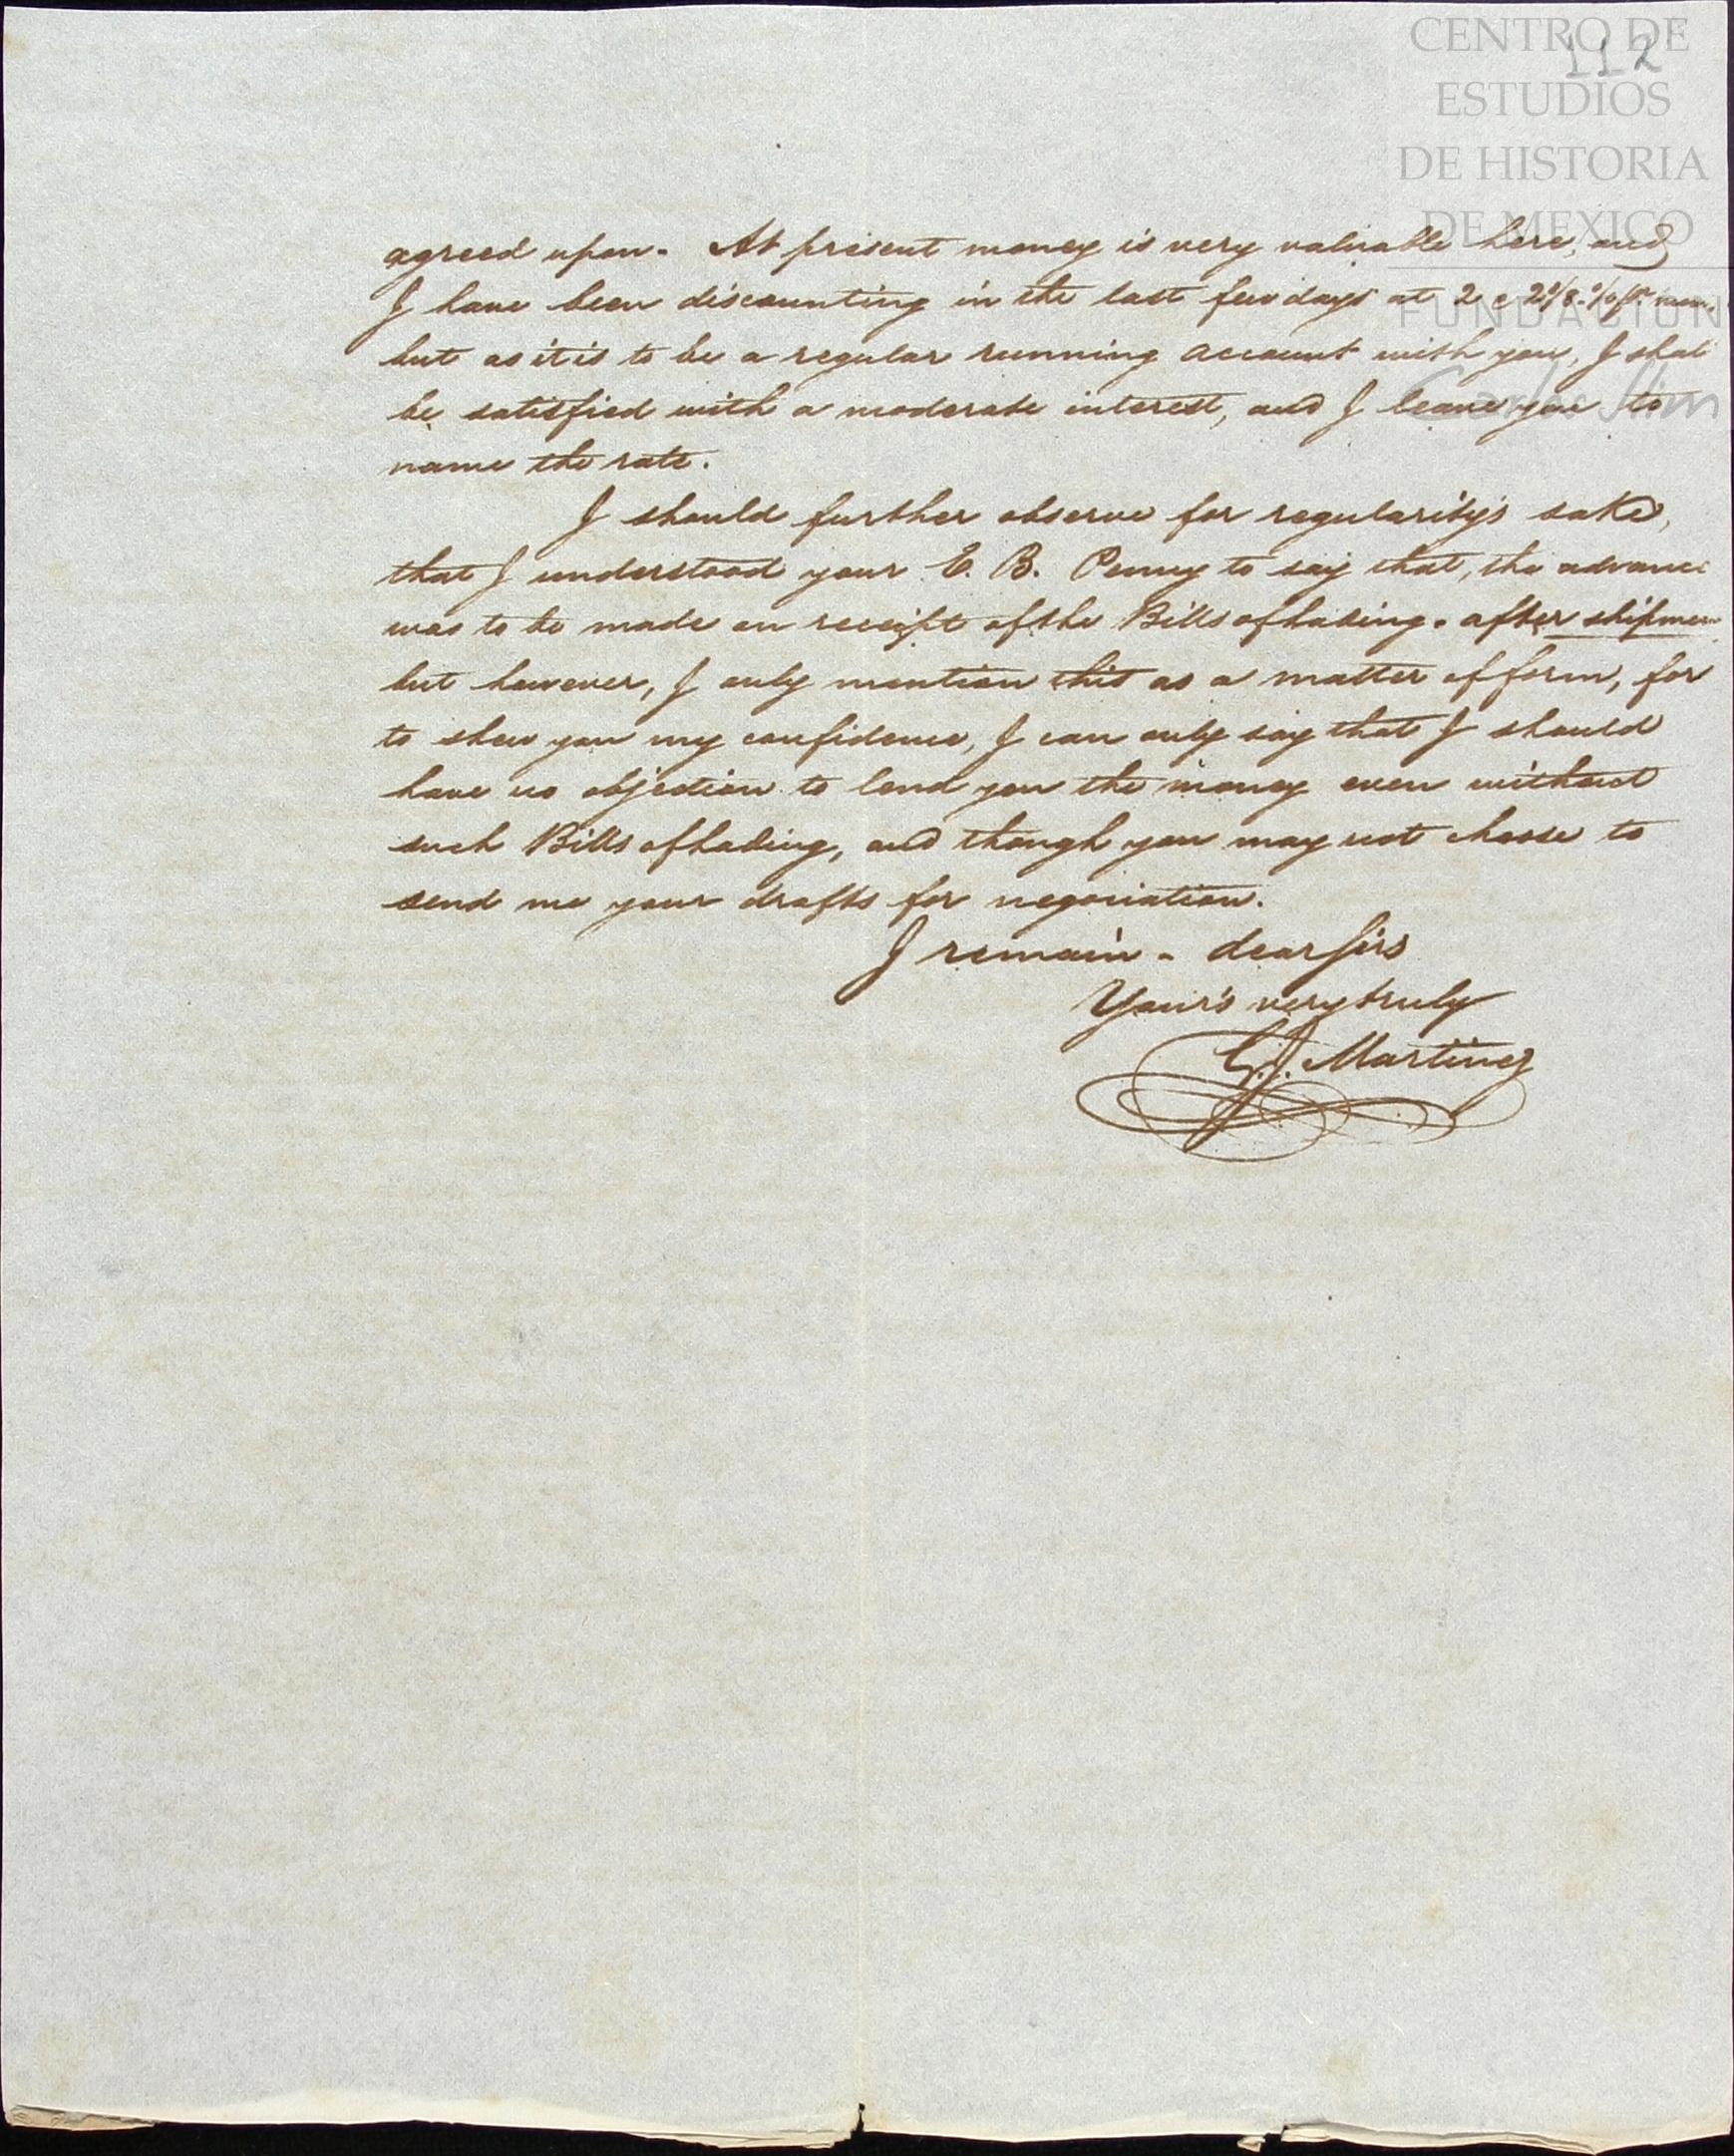 CENTRO DE
112
ESTUDIOS
DE HISTORIA
DE MEXICO
FUNDACION
Carlos Slim
agreed upon. At present money is very valuable here, and
I have been discounting in the last few days at 2 a
but as it is to be a regular running account with you, I shall
be satisfied with a moderate interest, and I leave you to
name the rate.
I should further observe for regularity's sake,
that I understood your E. B. Penny to say that, the advance
was to be made on receipt of the Bills of Lading. after shipmen
but however, I only mention this as a matter of form, for
to shew you my confidence, I can only say that I should
have no objection to lend you the money even without
such Bills of Lading, and though you may not choose to
send me your drafts for negociation.
I remain - dear Sirs
Your's very truly
G. J. Martinez